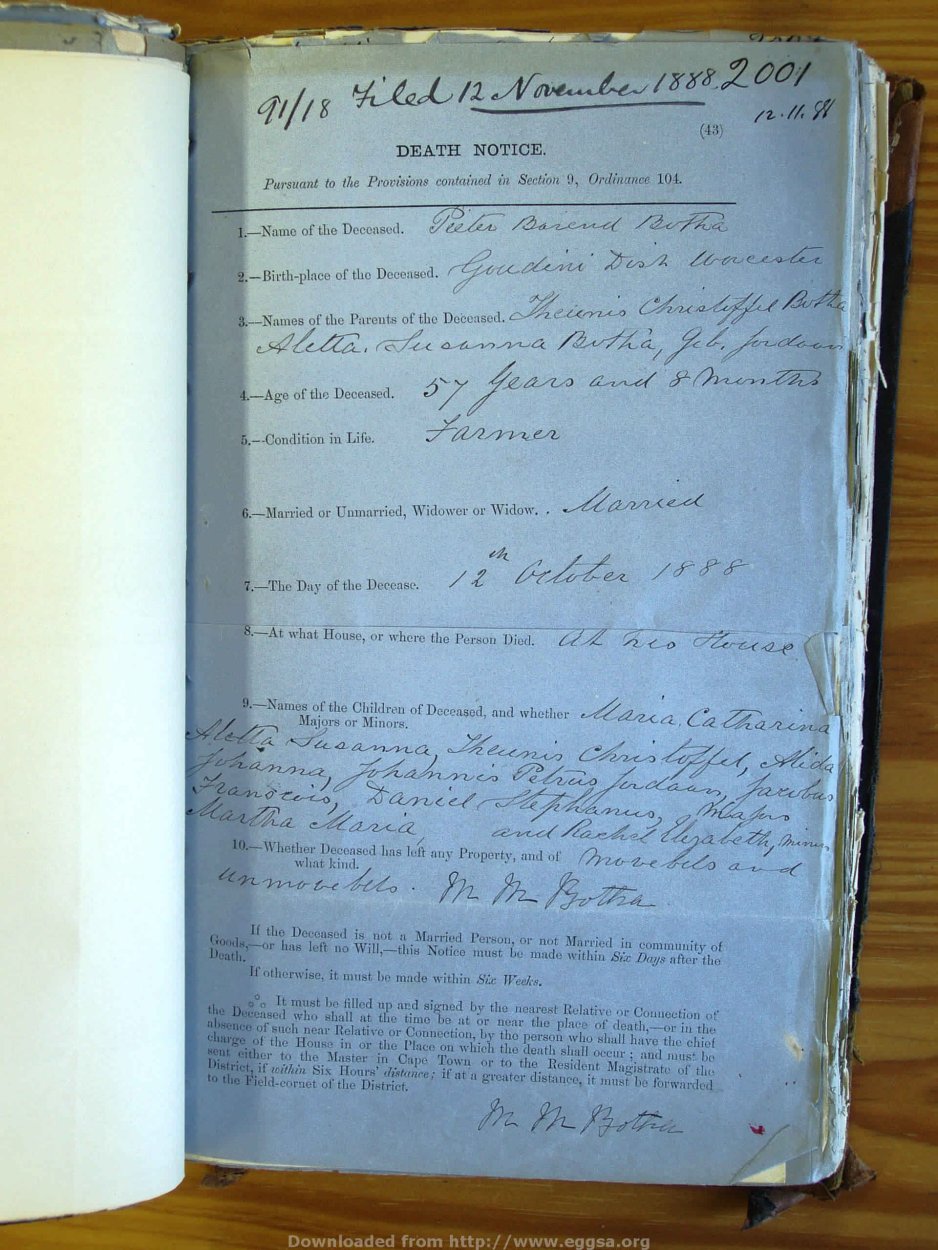 91/18 Filed 12 November 1888 2001
12.11.88
(43)
DEATH NOTICE.
Pursuant to the Provisions contained in Section 9, Ordinance 104.
1.—Name of the Deceased. Pieter Barend Botha
2.—Birth-place of the Deceased. Goudini Dist Worcester
3.—Names of the Parents of the Deceased. Theunis Christoffel Botha
Aletta Susanna Botha, Geb. Jordaan
4.—Age of the Deceased. 57 Years and 8 Months
5.—Condition in Life. Farmer
6.—Married or Unmarried, Widower or Widow. . Married
7.—The Day of the Decease. 12th October 1888
8.—At what House, or where the Person Died. At his House
9.—Names of the Children of Deceased, and whether Maria Catharina
Majors or Minors.
Aletta Susanna, Theunis Christoffel, Alida
Johanna, Johannis Petrus Jordaan, Jacobus
Franscois, Daniel Stephanus, Majors
Martha Maria, and Rachel Elizabeth, minors
10.—Whether Deceased has left any Property, and of Movebels and
what kind.
unmovebels. M M Botha
If the Deceased is not a Married Person, or not Married in community of
Goods,—or has left no Will,—this Notice must be made within Six Days after the
Death.
If otherwise, it must be made within Six Weeks.
It must be filled up and signed by the nearest Relative or Connection of
the Deceased who shall at the time be at or near the place of death,—or in the
absence of such near Relative or Connection, by the person who shall have the chief
charge of the House in or the Place on which the death shall occur; and must be
sent either to the Master in Cape Town or to the Resident Magistrate of the
District, if within Six Hours' distance; if at a greater distance, it must be forwarded
to the Field-cornet of the District.
M M Botha
Downloaded from http://www.eggsa.org